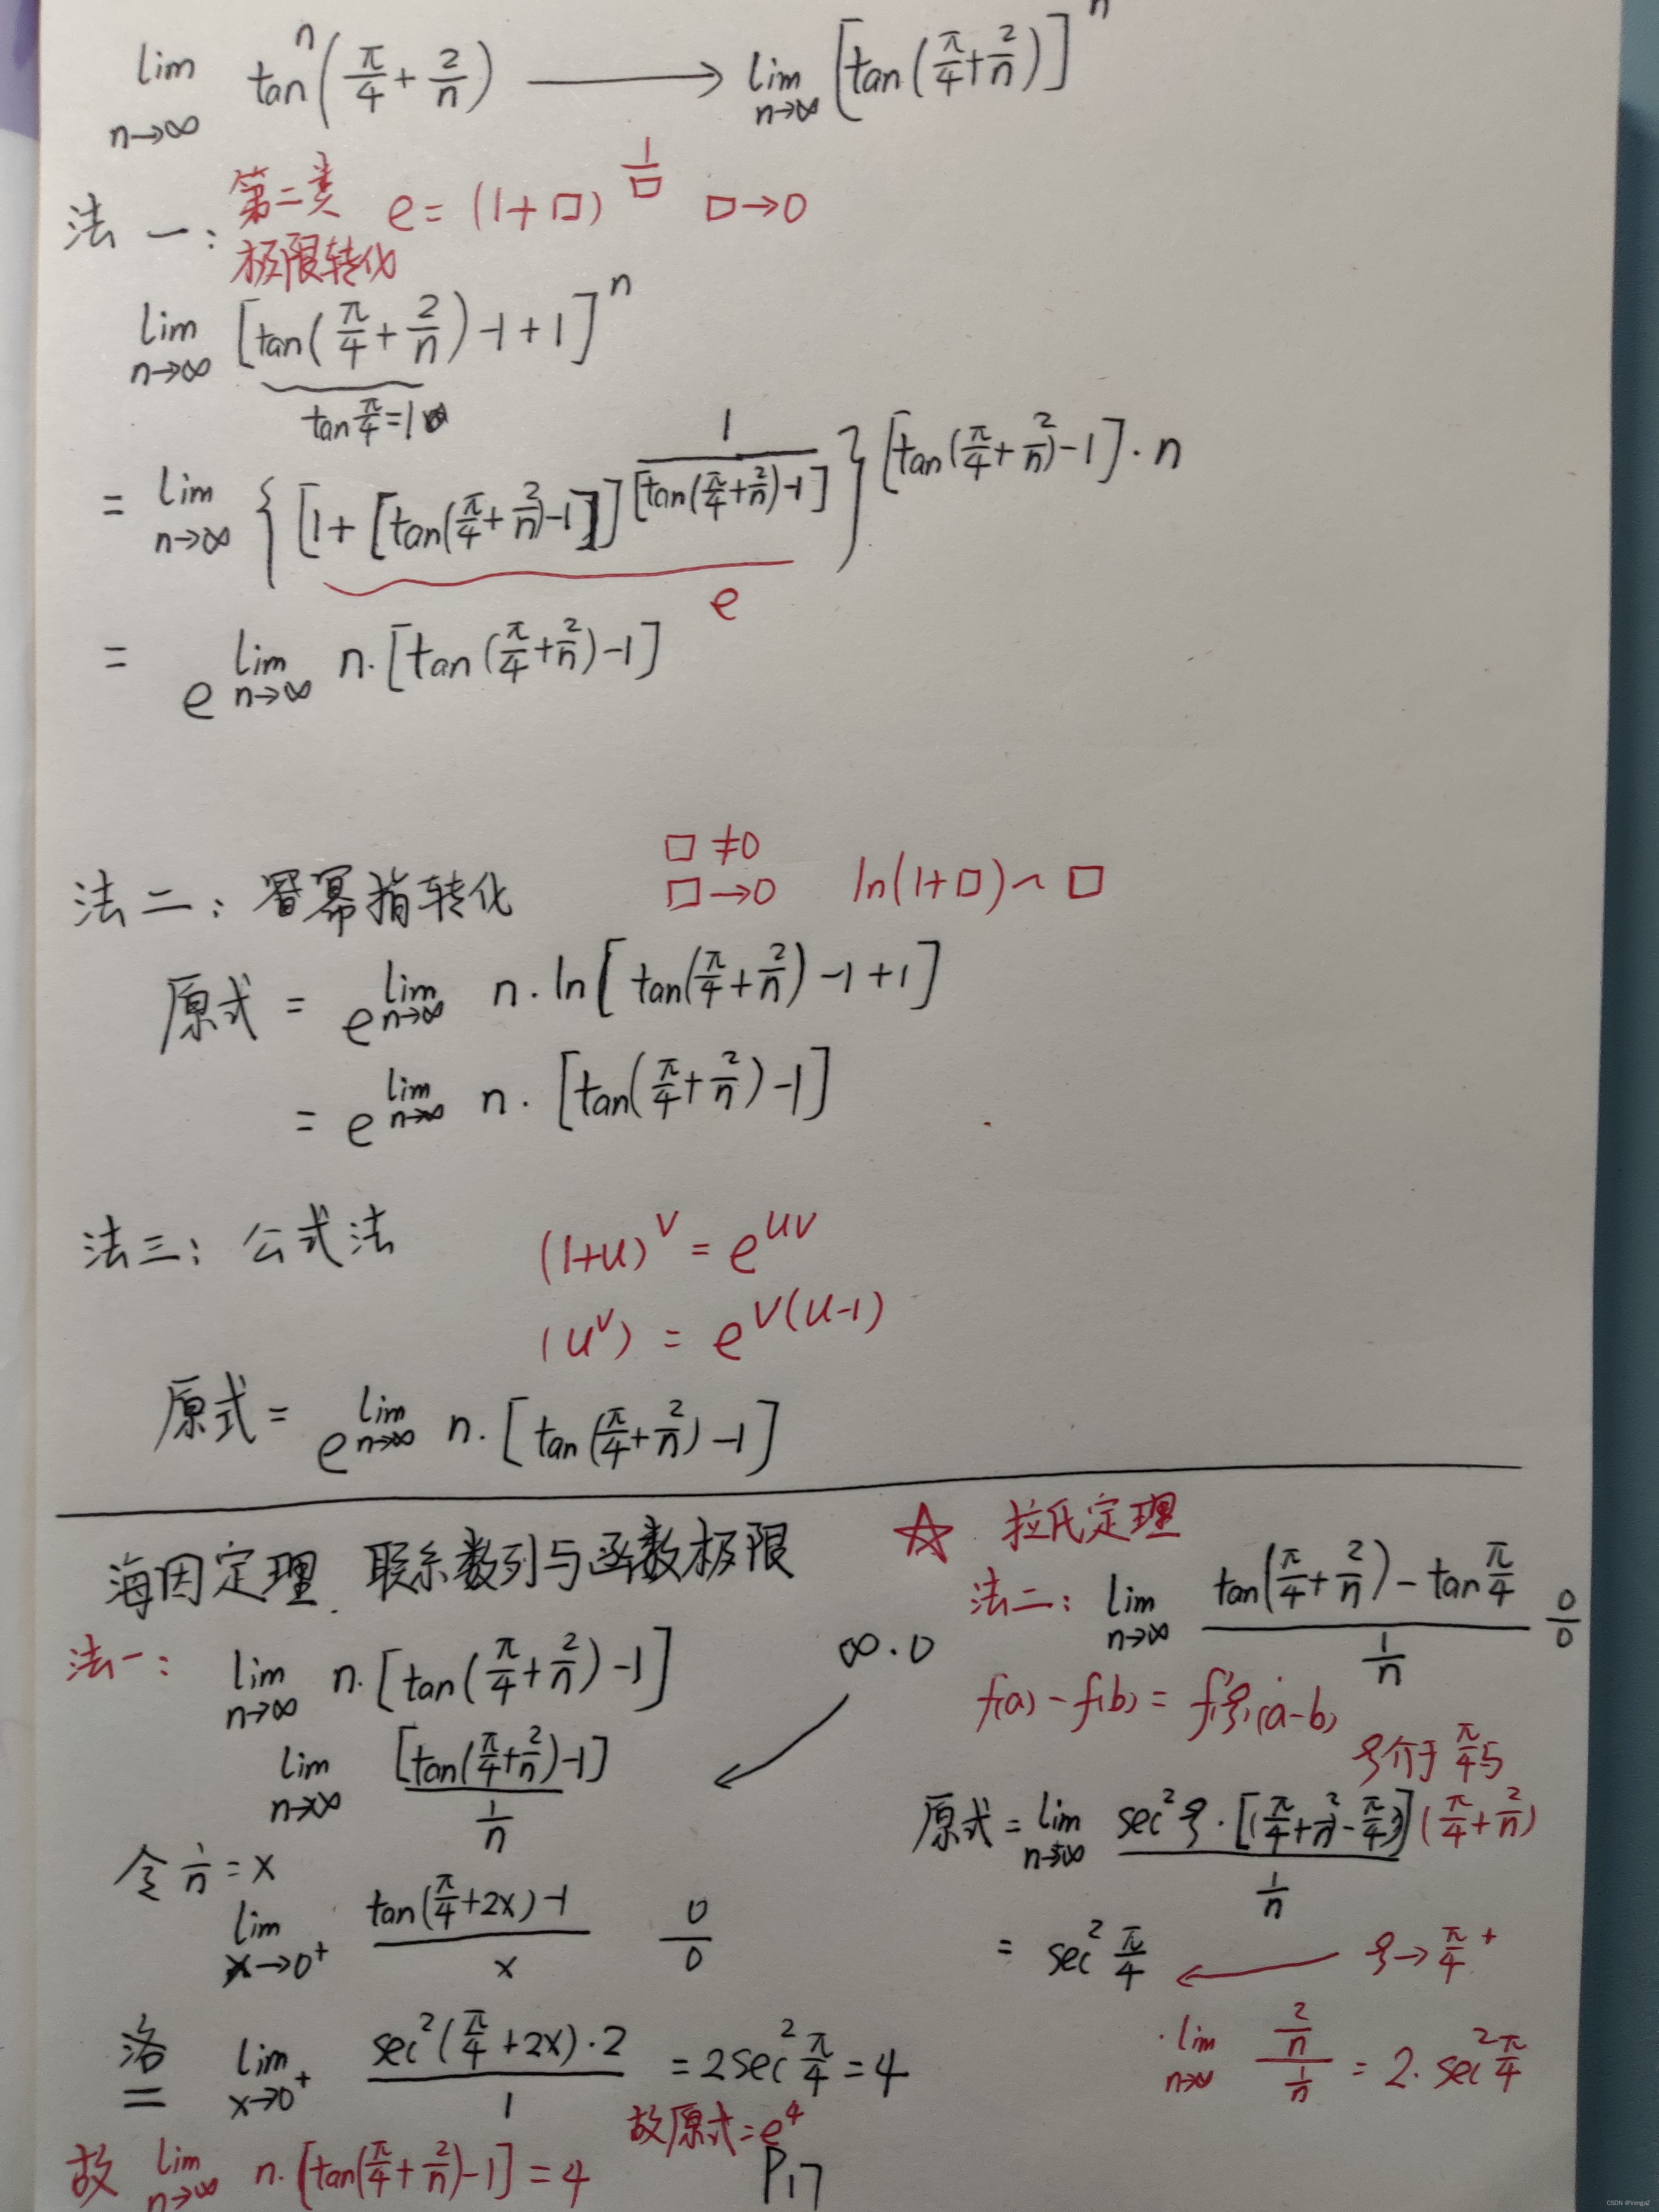 lim n→∞ tanⁿ(π/4 + 2/n) ⟶ lim n→∞ [tan(π/4+2/n)]ⁿ
法一: 第二类极限转化 e=(1+□)^(1/□) □→0
lim n→∞ [tan(π/4+2/n)-1+1]ⁿ
tan π/4=1
= lim n→∞ {[1+[tan(π/4+2/n)-1]]^(1/[tan(π/4+2/n)-1])}^([tan(π/4+2/n)-1]·n)
e
= e^(lim n→∞ n·[tan(π/4+2/n)-1])
□≠0
法二: 幂指转化 □→0 ln(1+□)~□
原式 = e^(lim n→∞ n·ln[tan(π/4+2/n)-1+1])
= e^(lim n→∞ n·[tan(π/4+2/n)-1])
法三: 公式法 (1+u)^v = e^(uv)
(u^v) = e^(v(u-1))
原式= e^(lim n→∞ n·[tan(π/4+2/n)-1])
海因定理. 联系数列与函数极限
法一: lim n→∞ n·[tan(π/4+2/n)-1] ∞·0
lim n→∞ [tan(π/4+2/n)-1] / (1/n)
令 1/n=x
lim x→0⁺ (tan(π/4+2x)-1)/x 0/0
洛
= lim x→0⁺ (sec²(π/4+2x)·2)/1 =2sec²π/4=4
故原式=e⁴
故 lim n→∞ n·[tan(π/4+2/n)-1]=4
P17
☆ 拉氏定理
法二: lim n→∞ (tan(π/4+2/n)-tanπ/4)/(1/n) 0/0
f(a)-f(b)=f'(ξ)(a-b)
ξ介于π/4与
(π/4+2/n)
原式= lim n→∞ (sec²ξ·[(π/4+2/n)-π/4])/(1/n)
= sec²π/4 ← ξ→π/4⁺
·lim n→∞ (2/n)/(1/n) = 2·sec²π/4
CSDN @VengaZ